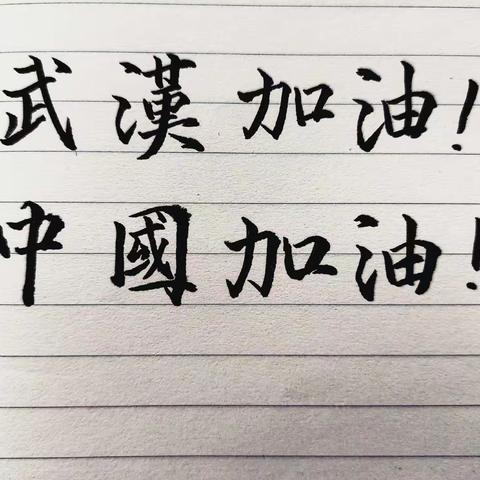 武漢加油!
中國加油!